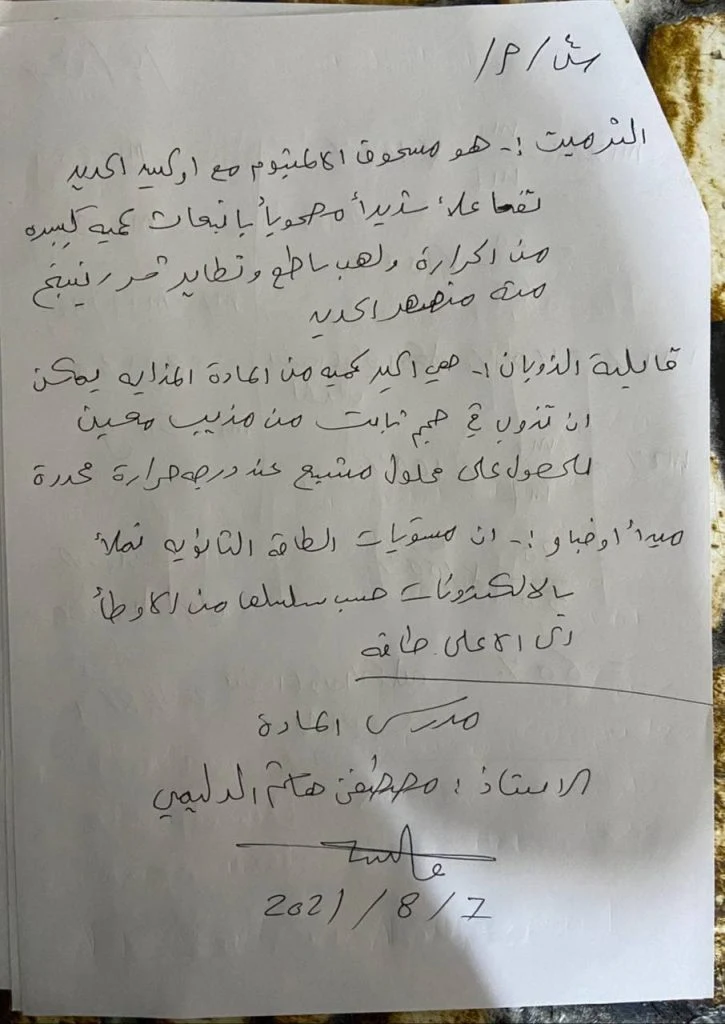 س٤/٢/
الثرميت :- هو مسحوق الالمنيوم مع اوكسيد الحديد
تفاعلاً شديداً مصحوباً بانبعاث كميه كبيره
من الحرارة ولهب ساطع وتطاير شرر ينتج
منه منصهر الحديد
قابلية الذوبان :- هي اكبر كميه من المادة المذابه يمكن
ان تذوب في حجم ثابت من مذيب معين
للحصول على محلول مشبع عند درجه حرارة محددة
مبدأ اوفباو :- ان مستويات الطاقة الثانويه تملأ
بالالكترونات حسب تسلسلها من الاوطأ
الى الاعلى طاقه
مدرس المادة
الاستاذ : مصطفى هاشم الدليمي
2021/8/7